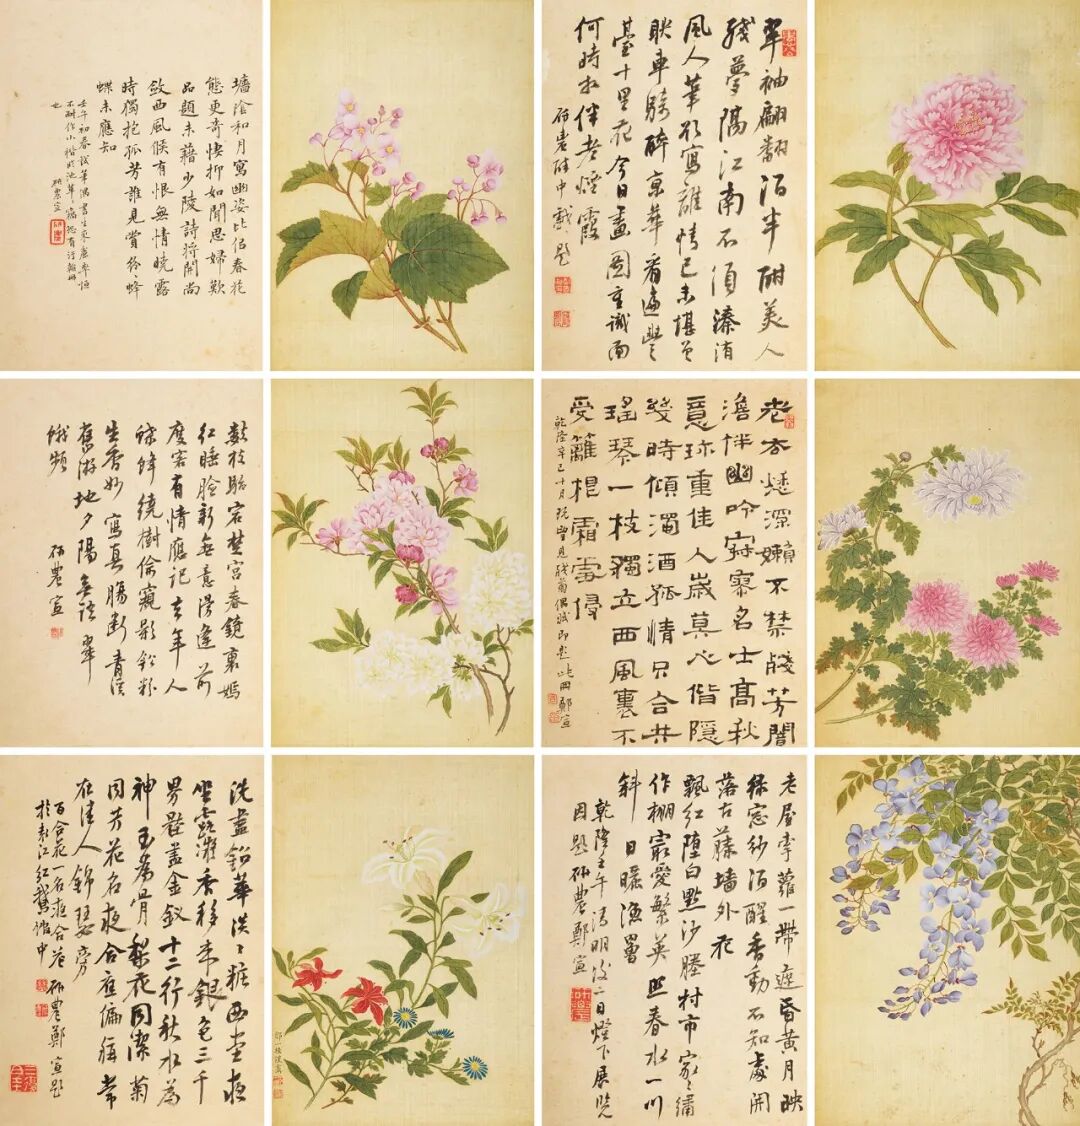 墻陰和月寫幽姿比侶春花
態更奇悽抑如聞思婦歎
品題未藉少陵詩將開尚
斂西風候有恨無情曉露
時獨抱孤芳誰見賞紛々蜂
蝶未應知
壬午初春試筆偶書
不耐作小楷
也 研農宣
翠袖翩翻陌半酣美人
殘夢隔江南不須溱洧
風人華欲寫離情已未堪
映車騎醉京華看遍豐
臺十里花今日畫圖重識面
何時相伴老煙霞
研農醉中戲題
數枝貽宕楚宮春鏡裏嫣
紅睡臉新無意漫逢前
度客有情應記去年人
繞樹偷窺影鉛粉
生香妙寫真腸斷青溪
舊游地夕陽無語翠
蛾顰
研農宣
老 愁深嬾不禁殘芳闇
澹伴幽吟寂寥名士高秋
意珍重佳人歲莫心偕隱
幾時傾濁酒孤情只合共
瑤琴一枝獨立西風裏不
受籬根霜雪侵
乾隆辛巳十月既望見殘菊偶賦即題此冊鄭宣
洗盡鉛華淡々粧西堂夜
坐露凝香移來銀色三千
界散盡金釵十二行秋水為
神玉為骨梨花同潔菊
同芳花名夜合應偏稱常
在佳人錦瑟旁
百合花一名夜合花 研農鄭宣題
於袁江紅蕉館中
鄒一桂謹寫
老屋牽蘿一帶遮昏黃月映
緑窓紗酒醒香動不知處開
落古藤墻外花
飄紅墮白點沙塍村市家々繡
作棚最愛繁英照春水一川
斜日曬漁罾
乾隆壬午清明後二日燈下展覽
因題研農鄭宣